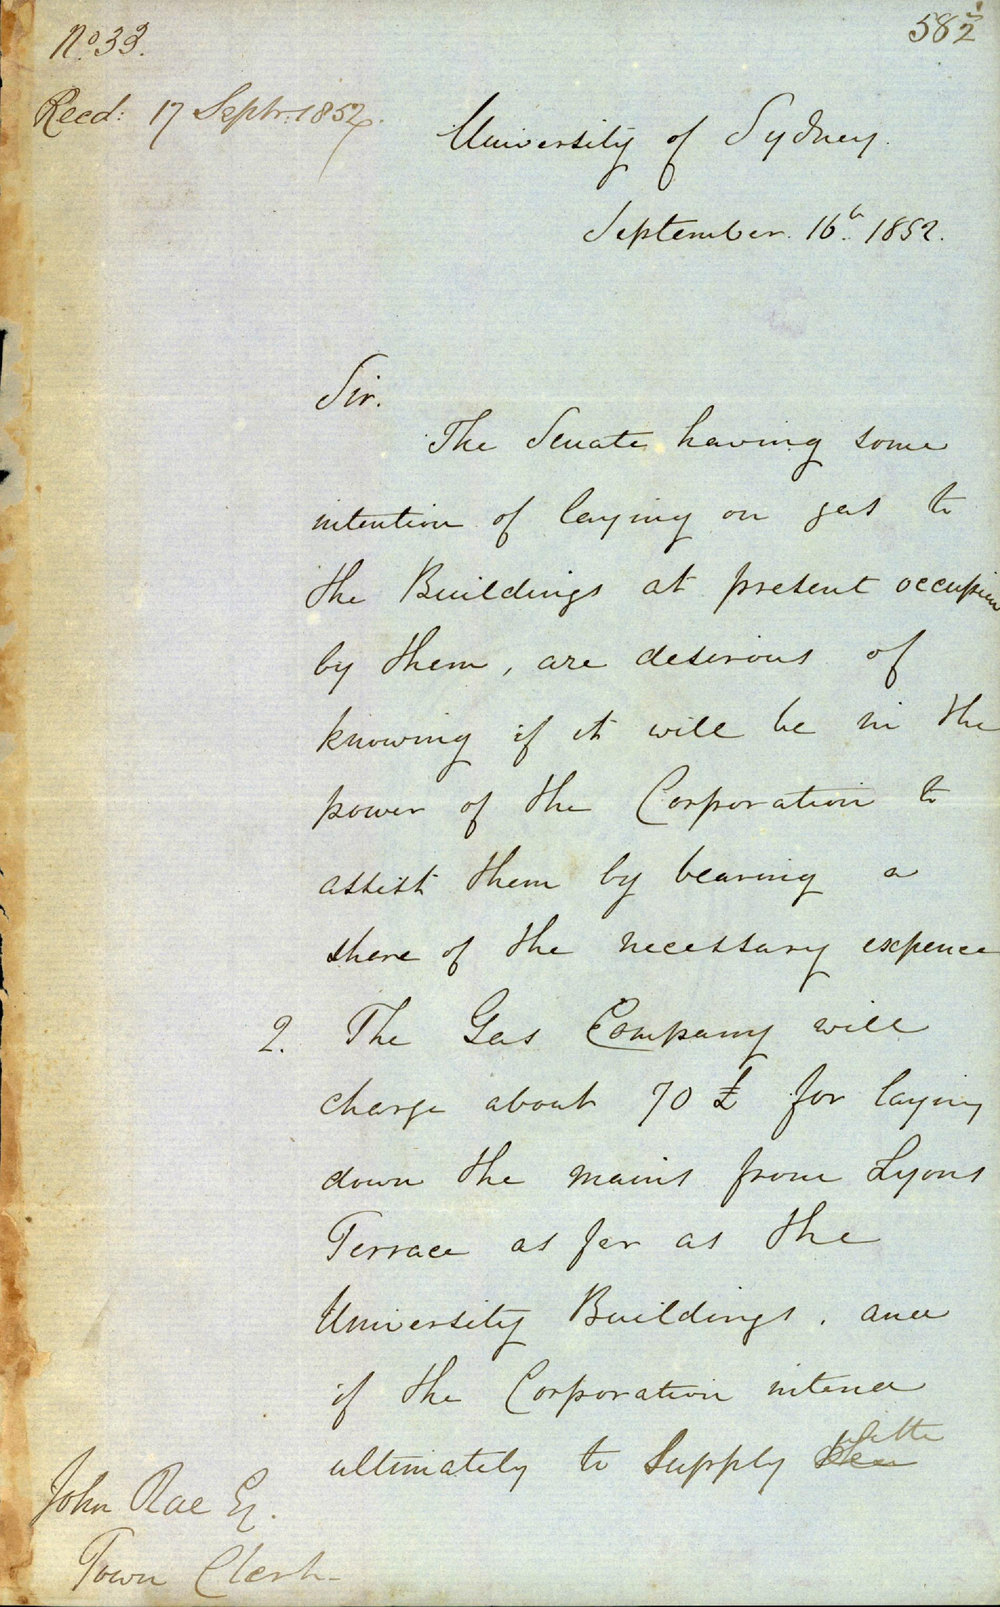 No. 33.
58½
Recd: 17 Septr. 1852.
University of Sydney.
September. 16th. 1852.
Sir.
The Senate having some
intention of laying on gas to
the Buildings at present occupied
by them, are desirous of
knowing if it will be in the
power of the Corporation to
assist them by bearing a
share of the necessary expence
2. The Gas Company will
charge about 70 £ for laying
down the mains from Lyons
Terrace as far as the
University Buildings. and
if the Corporation intend
ultimately to supply with
John Rae Eq.
Town Clerk